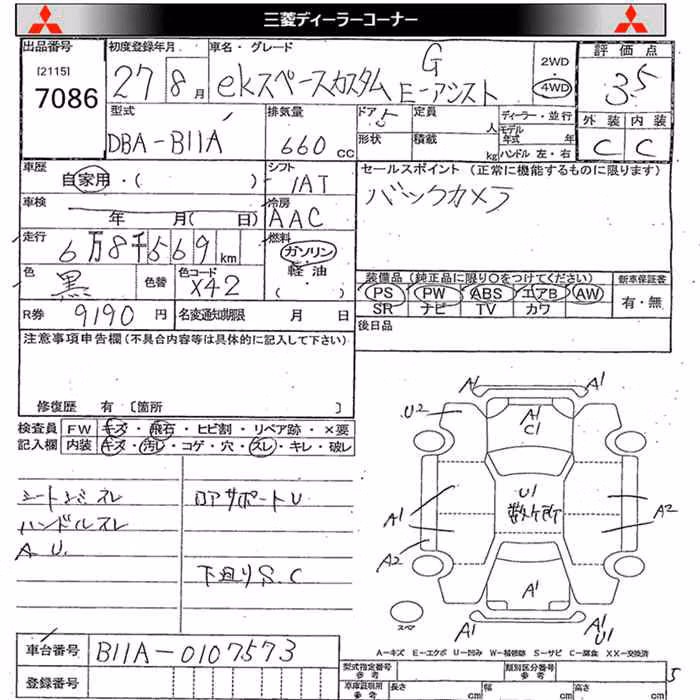 三菱ディーラーコーナー
出品番号
[2115]
7086
初度登録年月
27 8月
車名・グレード
ekスペースカスタム G E-アシスト
2WD
・
4WD
評価点
3.5
外装 内装
C C
型式
DBA-B11A
排気量
660 cc
ドア 5
形状
定員 人
積載 kg
ディーラー・並行
モデル年式 年
ハンドル 左・右
車歴
自家用・( )
シフト
IAT
セールスポイント (正常に機能するものに限ります)
バックカメラ
車検
年 月( 日)
冷房
AAC
走行
6万8千569km
燃料
ガソリン
軽油
( )
色
黒
色替
色コード
X42
装備品(純正品に限り〇をつけてください)
PS PW ABS エアB AW
SR ナビ TV カワ
新車保証書
有・無
R券 9190 円
名変通知期限 月 日
後日品
注意事項申告欄(不具合内容等は具体的に記入して下さい)
修復歴 有 〔箇所 〕
検査員記入欄
FW キズ・飛石・ヒビ割・リペア跡・×要
内装 キズ・汚レ・コゲ・穴・スレ・キレ・破レ
ハンドルスレ
A U.
ロアサポートU
下廻りS.C
A1 A1
U2
A1
C1
U1
数ケ所
A1 A2
A2
A1
A1 A1
U1
スペア
A-キズ E-エクボ U-凹み W-補修跡 S-サビ C-腐食 XX-交換済
車台番号
B11A-0107573
登録番号
型式指定番号
参考
類別区分番号
参考
車庫証明用
参考
長さ cm
幅 cm
高さ cm
5